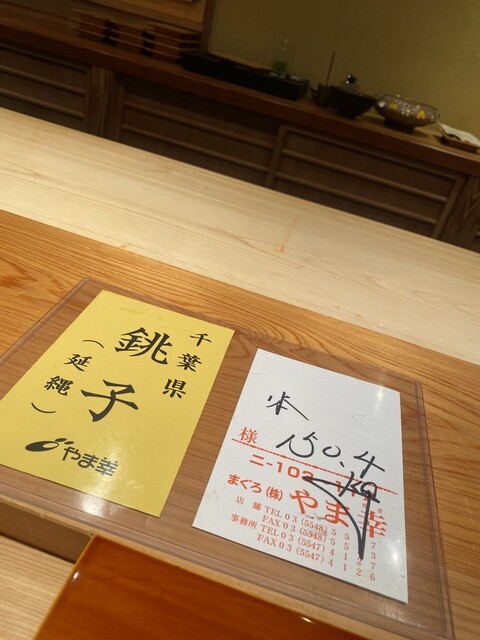 千葉県
銚子
（延縄）
やま幸
様
150.4
kg
ニ-102
まぐろ（株）やま幸
店舗 TEL 03(5548)
FAX 03(5548)
事務所 TEL 03(5547)
FAX 03(5547)